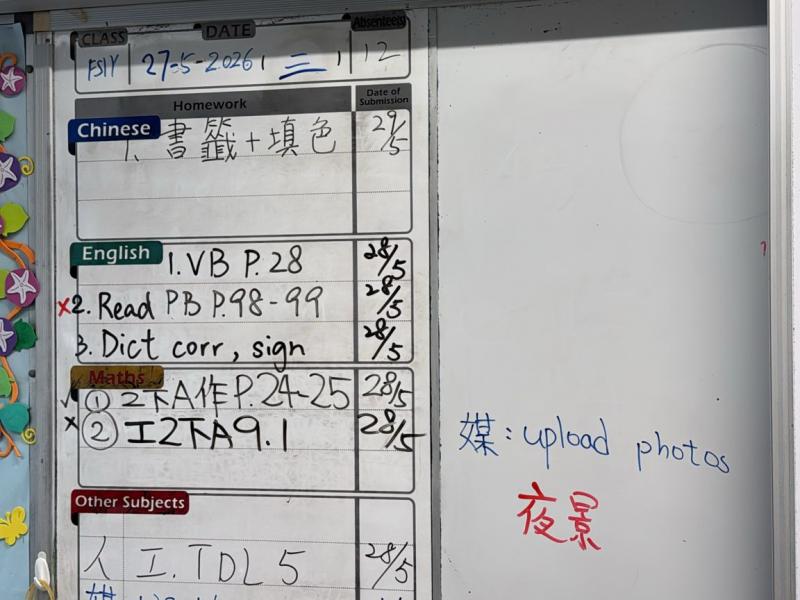 CLASS DATE Absentees
27-5-2026 三 12
Homework Date of Submission
Chinese
1. 書籤+填色 29/5
English
1. VB P.28 28/5
×2. Read PB P.98-99 28/5
3. Dict corr, sign 28/5
Maths
✓① 2下A作P.24-25 28/5
×② 工2下A9.1 28/5
媒: upload photos
夜景
Other Subjects
人 工. TDL 5 28/5
媒